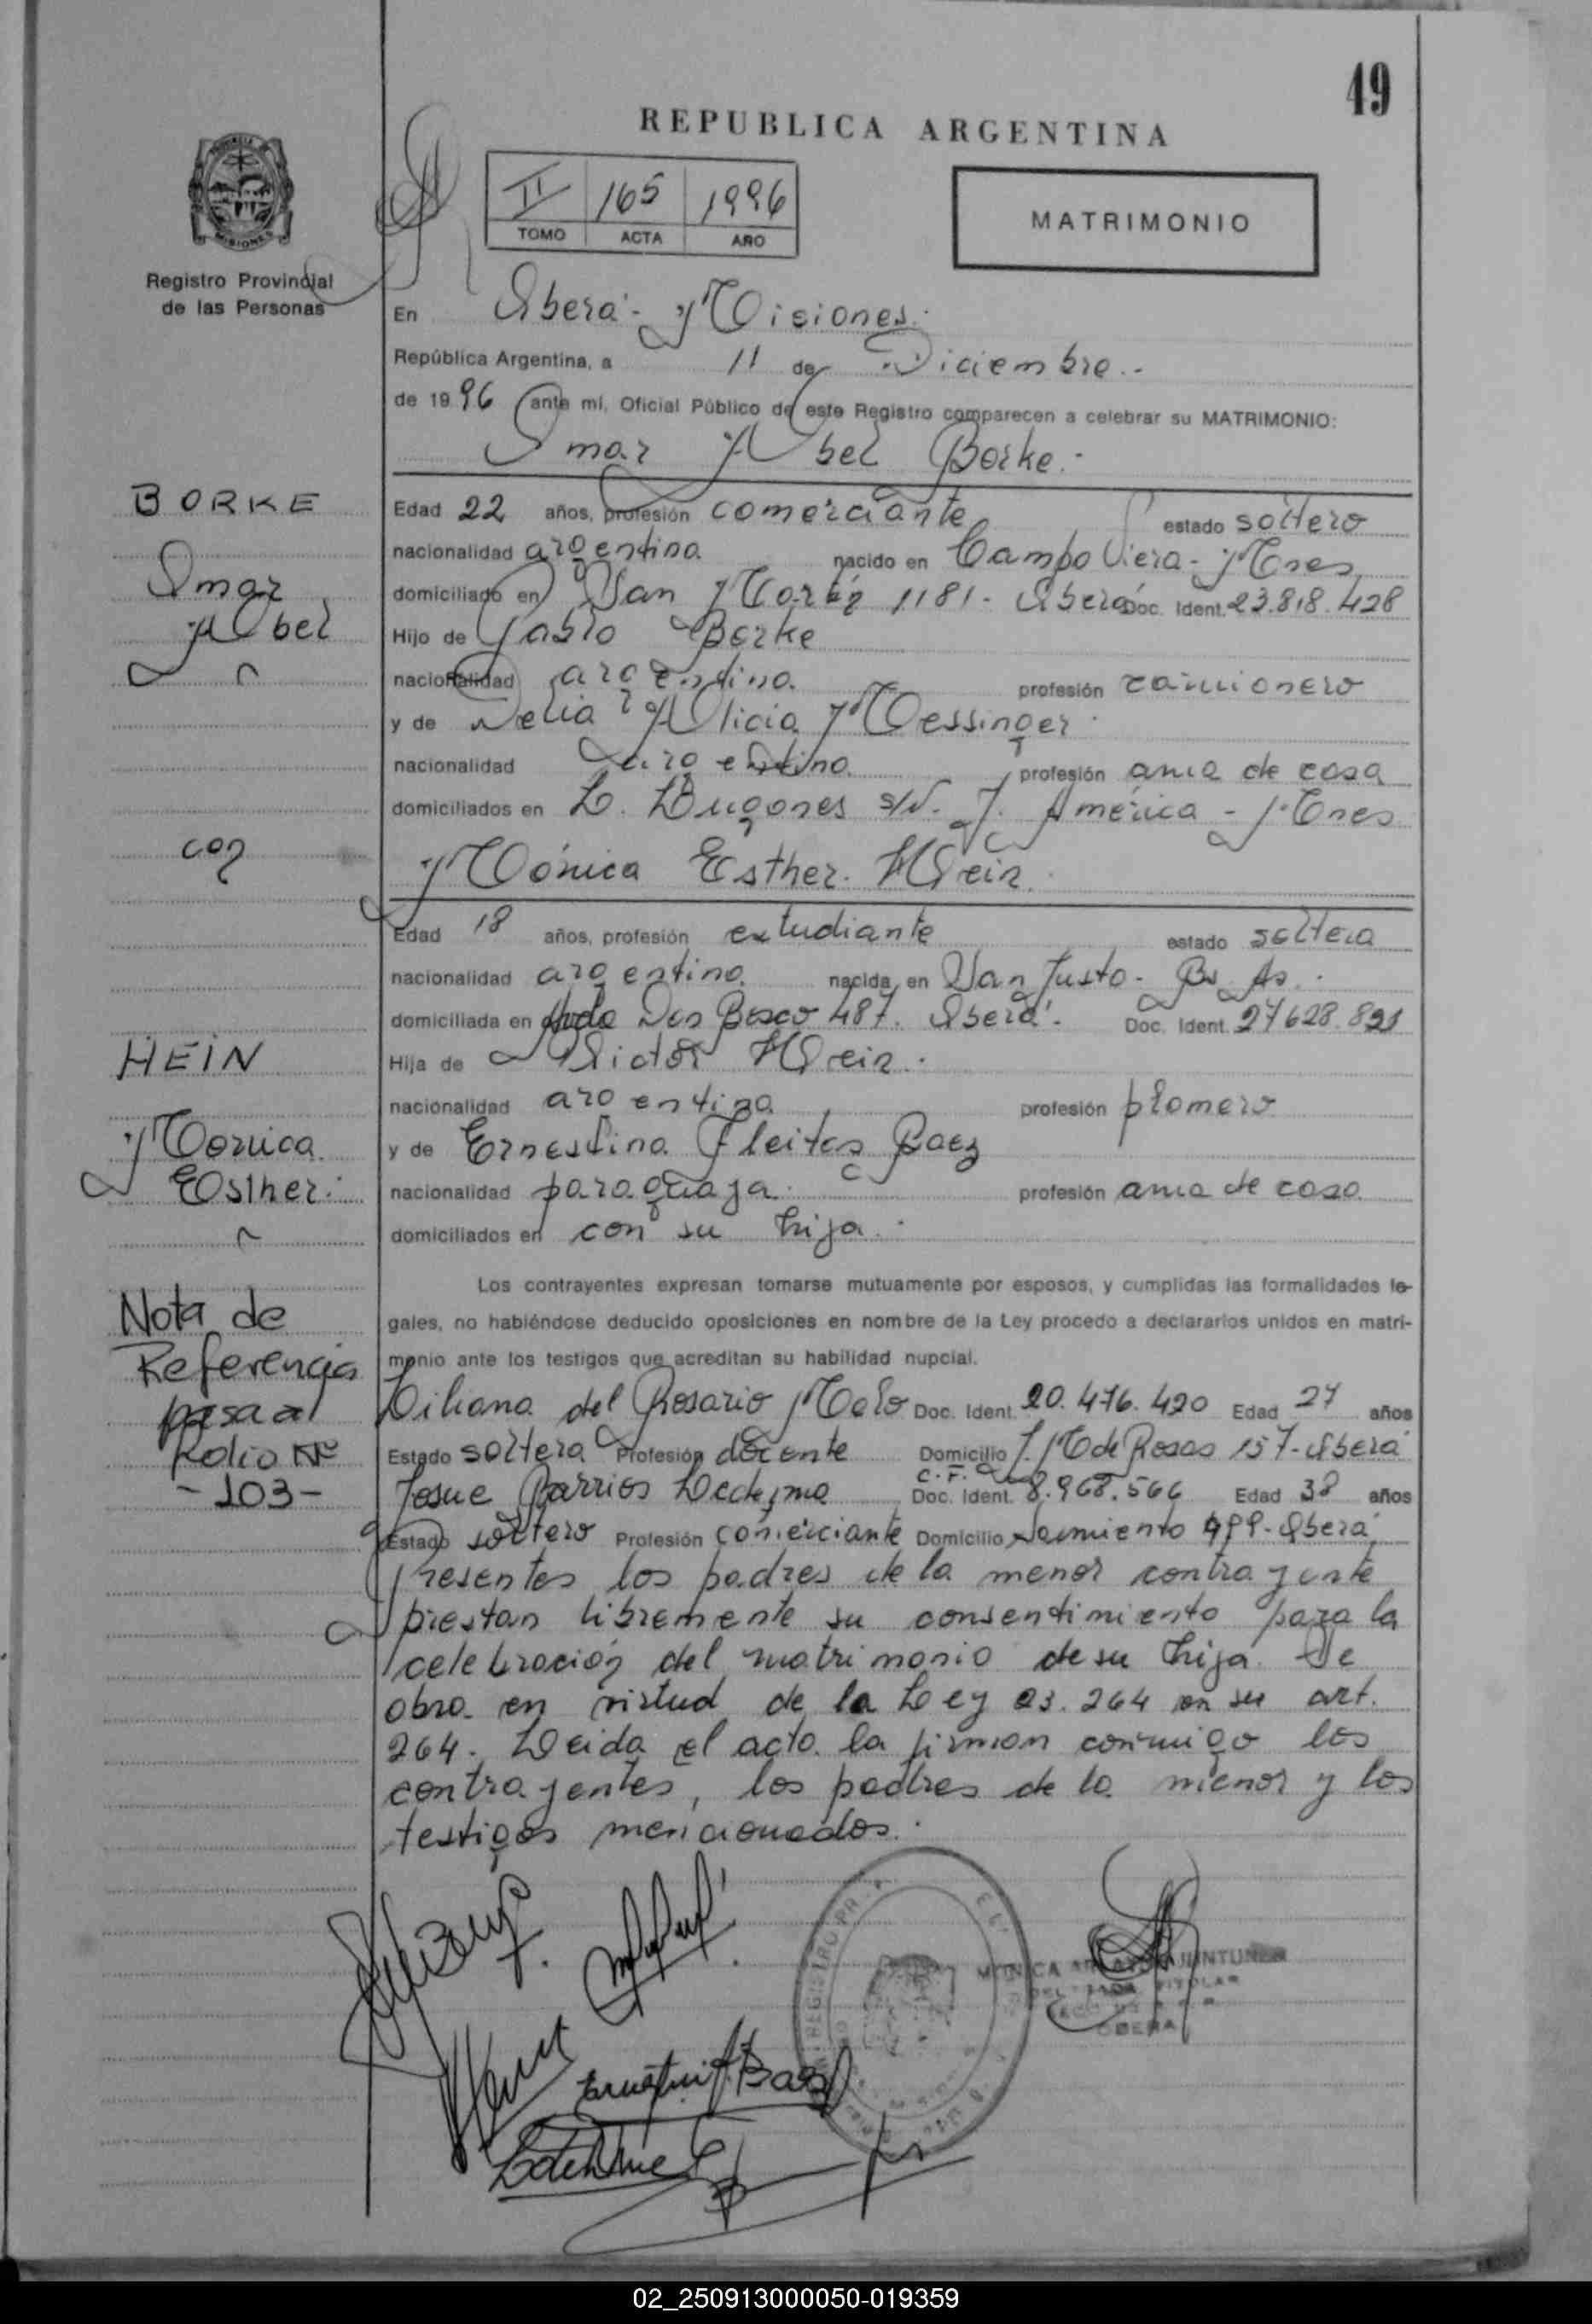 49
REPUBLICA ARGENTINA
II 165 1996
TOMO ACTA AÑO
MATRIMONIO
MISIONES
Registro Provincial
de las Personas
En Oberá - Misiones.
República Argentina, a 11 de Diciembre.-
de 1996 ante mí, Oficial Público de este Registro comparecen a celebrar su MATRIMONIO:
Omar Abel Borke.-
BORKE
Omar
Abel
Edad 22 años, profesión comerciante estado soltero
nacionalidad argentina nacido en Campo Viera - Mnes
domiciliado en San Martín 1181 - Oberá Doc. Ident. 23.818.428
Hijo de Pablo Borke
nacionalidad argentina profesión camionero
y de Delia Alicia Messinger.
nacionalidad argentina profesión ama de casa
domiciliados en L. Lugones s/N. J. América - Mnes
con
Mónica Esther Hein.
Edad 18 años, profesión estudiante estado soltera
nacionalidad argentina nacida en San Justo - Bs. As.
domiciliada en Avda Don Bosco 487. Oberá. Doc. Ident. 27628.891
HEIN
Monica
Esther.
Hija de Victor Hein.
nacionalidad argentina profesión plomero
y de Ernestina Fleitas Baez
nacionalidad paraguaya. profesión ama de casa
domiciliados en con su hija.
Los contrayentes expresan tomarse mutuamente por esposos, y cumplidas las formalidades le-
gales, no habiéndose deducido oposiciones en nombre de la Ley procedo a declararlos unidos en matri-
monio ante los testigos que acreditan su habilidad nupcial.
Nota de
Referencia
pasa al
Folio Nº
- 103 -
Liliana del Rosario Melo Doc. Ident. 20.476.420 Edad 27 años
Estado soltera Profesión docente Domicilio J. M de Rosas 157 - Oberá
Josue Barrios Ledesma C.F. Doc. Ident. 8.968.566 Edad 38 años
Estado soltero Profesión comerciante Domicilio Sarmiento 499 - Oberá
Presentes los padres de la menor contrayente
prestan libremente su consentimiento para la
celebración del matrimonio de su hija. Se
obra en virtud de la Ley 23.264 en su art.
264. Leida el acta la firman conmigo los
contrayentes, los padres de la menor y los
testigos mencionados.
OBERA
02_250913000050-019359